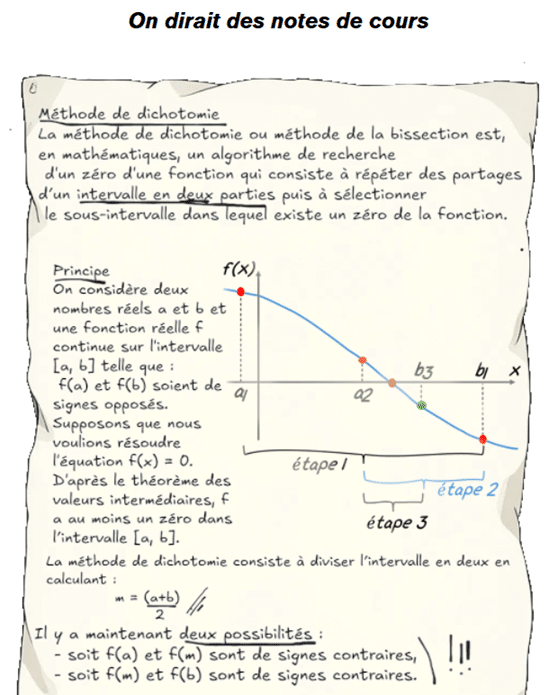 On dirait des notes de cours
Méthode de dichotomie
La méthode de dichotomie ou méthode de la bissection est,
en mathématiques, un algorithme de recherche
d'un zéro d'une fonction qui consiste à répéter des partages
d'un intervalle en deux parties puis à sélectionner
le sous-intervalle dans lequel existe un zéro de la fonction.
Principe
On considère deux
nombres réels a et b et
une fonction réelle f
continue sur l'intervalle
[a, b] telle que :
f(a) et f(b) soient de
signes opposés.
Supposons que nous
voulions résoudre
l'équation f(x) = 0.
D'après le théorème des
valeurs intermédiaires, f
a au moins un zéro dans
l'intervalle [a, b].
f(x)
b3
b1
x
a1
a2
étape 1
étape 2
étape 3
La méthode de dichotomie consiste à diviser l'intervalle en deux en
calculant :
m = (a+b)
2
Il y a maintenant deux possibilités :
- soit f(a) et f(m) sont de signes contraires,
- soit f(m) et f(b) sont de signes contraires.
!!!